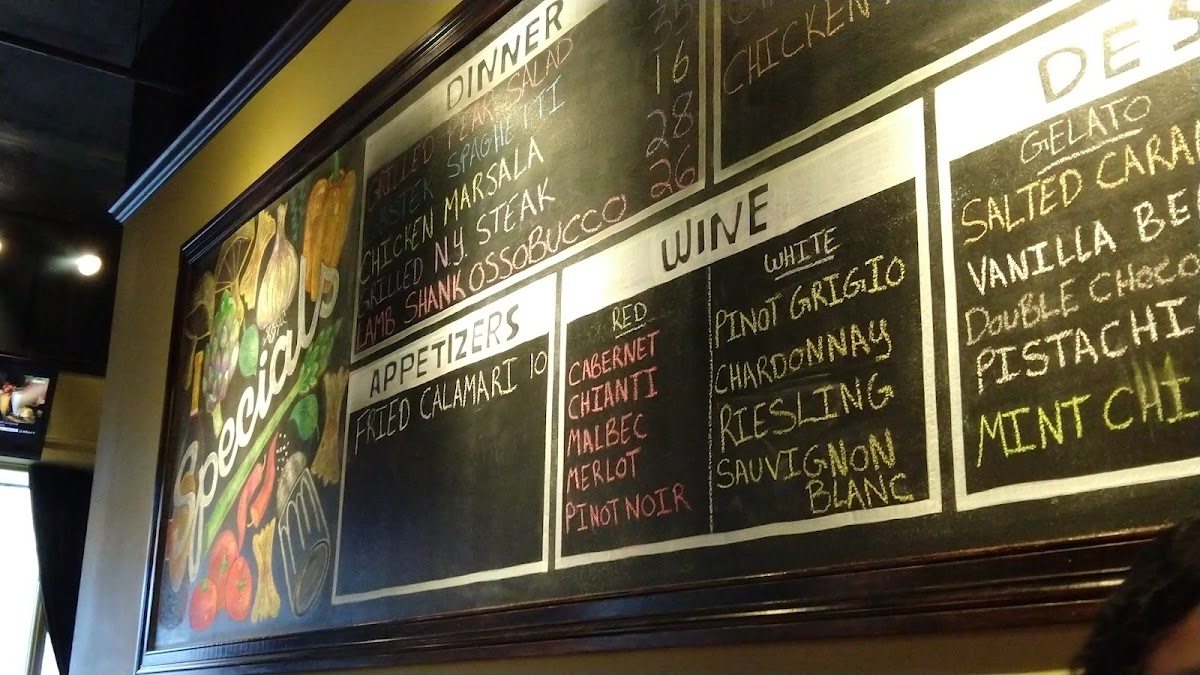 Specials
DINNER
GRILLED PEAR SALAD
SPAGHETTI
CHICKEN MARSALA 16
GRILLED N.Y. STEAK 28
LAMB SHANK OSSOBUCCO 26
APPETIZERS
FRIED CALAMARI 10
CHICKEN
WINE
RED
CABERNET
CHIANTI
MALBEC
MERLOT
PINOT NOIR
WHITE
PINOT GRIGIO
CHARDONNAY
RIESLING
SAUVIGNON
BLANC
DES
GELATO
SALTED CARA
VANILLA BE
DOUBLE CHOCO
PISTACHI
MINT CHI